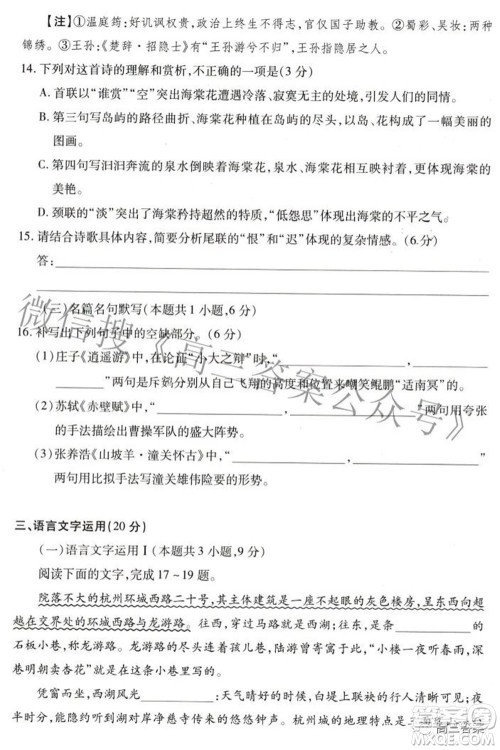 【注】①温庭筠：好讥讽权贵，政治上失意，官仅国子助教。②蜀彩、文梭：两种
锦绣。③王孙：《楚辞·招隐士》有“王孙游兮不归”，王孙指隐居之人。
14.下列对这首诗的理解和赏析，不正确的一项是(3分)
A.首联以“谁赏”“空”突出海棠花遭遇冷落、寂寞无主的处境，引发人们的同情。
B.第三句写岛屿的路径曲折、海棠花种植在岛屿的尽头，构成了一幅美丽的
图画。
C.第四句写汩汩奔流的泉水倒映着海棠花，泉水、海棠相互映衬着，体现海棠的
美艳。
D.颈联的“淡”突出了海棠矜持超然的特点，“低怨思”体现海棠的不平之气。
15.请结合诗歌具体内容，简要分析尾联的“恨”和“迟”体现的复杂情感。(6分)
答：
(三)名篇名句默写(本题共1小题，6分)
16.补写出下列句子中的空缺部分。(6分)
(1)庄子《逍遥游》中，在论证“小大之辩”时，“
”两句是斥鹞以自己飞翔的高度和位置来嘲笑鲲鹏“适南冥”的。
(2)苏轼《赤壁赋》中，“____，____”两句用夸张
的手法描绘曹操军队的盛大阵势。
(3)张养浩《山坡羊·潼关怀古》中，“____，____”
两句用比拟手法写潼关雄伟险要的形势。
三、语言文字运用(20分)
(一)语言文字运用Ⅰ(本题共3小题，9分)
阅读下面的文字，完成17～19题。
院落不大的杭州环城西路二十号，其主体建筑是一座不起眼的灰色楼房，呈东西向超
越在交界处的环城西路与龙游路。往西，穿过马路，便是西湖；往东，是一条____的
石板小巷，称龙游路。龙游路的尽头连着另一条小巷，名孩儿巷，“小楼一夜听春雨，深
巷明朝卖杏花”的意境就诞生在那里。
凭窗而立，西湖风光____：天气晴好的日子，可见点点游船；夜
半时分，能听到由湖对岸净慈寺传来的悠悠钟声。杭州城的地理特点是三
微信搜《高三答案公众号》
高三答案